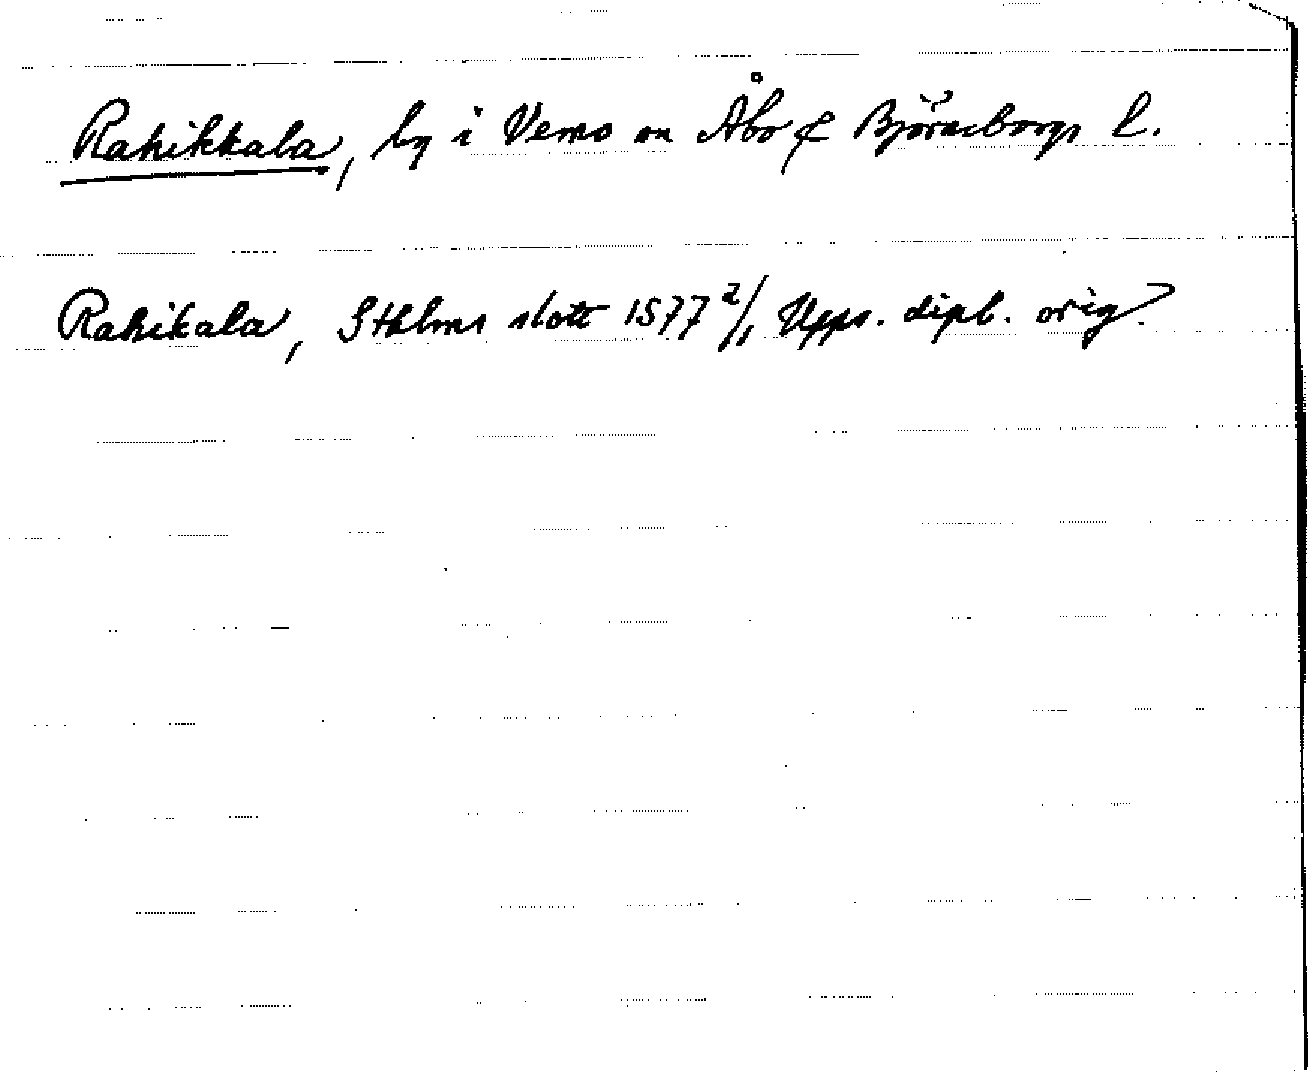 Rahikkala, by i Vemo sn Åbo & Björneborgs l.
Rahikala, Sthlms slott 1577 2/1 Upps. dipl. orig?